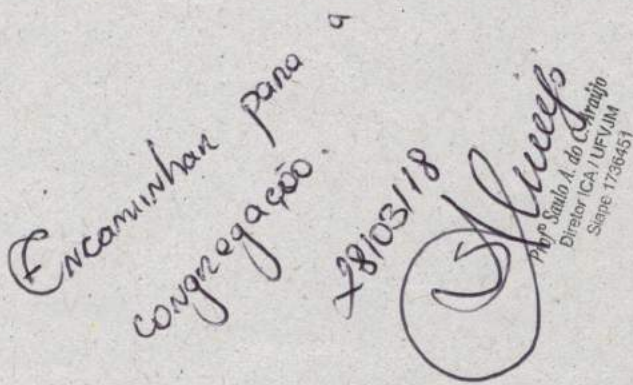 Encaminhar para a
congregação.
28/03/18
Profº Saulo A. do C. Araújo
Diretor ICA / UFVJM
Siape 1736451